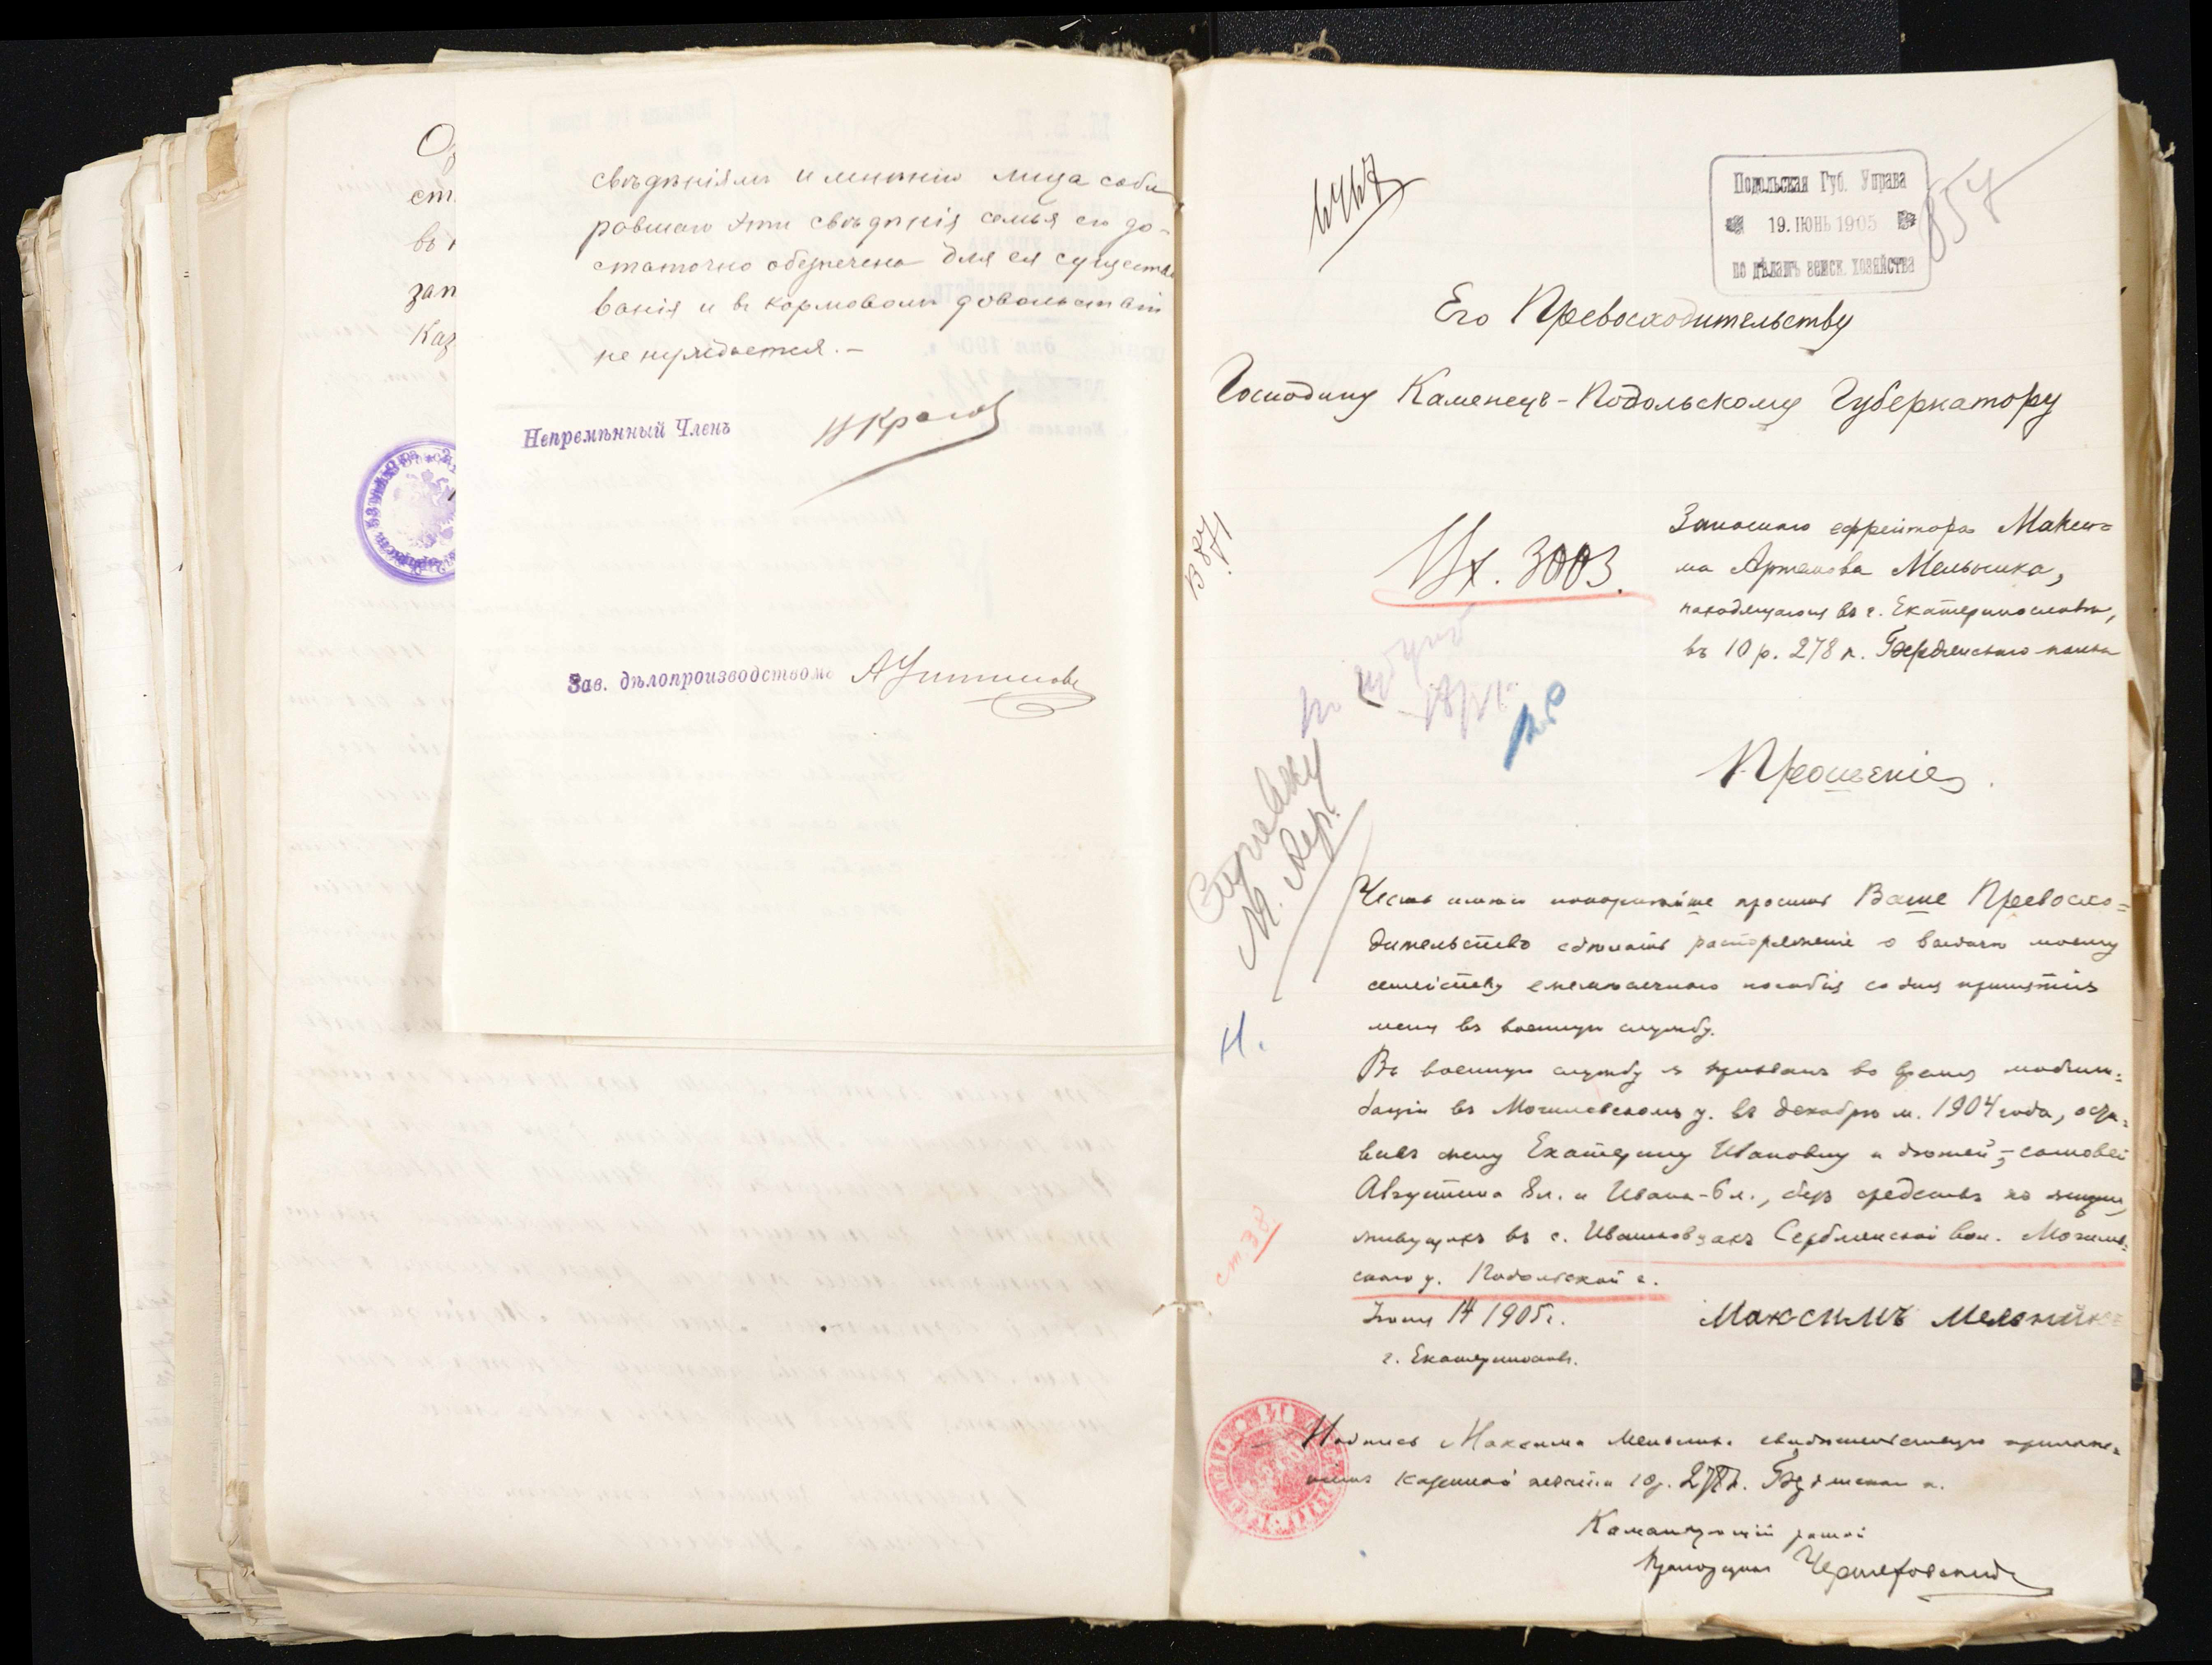 свѣдѣніямъ и мнѣнію лица соби
равшаго эти свѣдѣнія семья его до-
статочно обезпечена для ея существо
ванія и въ кормовомъ довольствіи
не нуждается.-
Непремѣнный Членъ
Зав. дѣлопроизводствомъ
ст.
въ
зап
Каз
Подольская Губ. Управа
19. ІЮНЬ 1905
по дѣламъ земск. хозяйства
857
Его Превосходительству
Господину Каменецъ-Подольскому Губернатору
В 871
Вх. 3003.
Запасного ефрейтора Макси=
ма Артемова Мельника,
находящагося въ г. Екатеринославѣ,
въ 10 р. 278 п. Бердянскаго полка
Прошеніе.
Справку
Честь имѣю покорнѣйше просить Ваше Превосхо=
дительство сдѣлать распоряженіе о выдачѣ моему
семейству ежемѣсячнаго пособія со дня принятія
меня въ военную службу.
Н.
Въ военную службу я призванъ во время мобили=
заціи въ Могилевскомъ у. въ декабрѣ м. 1904 года, оста=
вивъ жену Екатерину Ивановну и дѣтей,-сыновей
Августина 8 л. и Ивана-6 л., безъ средствъ къ жизни,
живущихъ въ с. Ивашковцахъ Серблянской вол. Могилев=
скаго у. Подольской г.
ст 38
Іюня 14 1905 г.
Максимъ Мельникъ
г. Екатеринославъ.
Подпись Максима Мельника свидѣтельствую приложе=
ніемъ казенной печати 10 р. 278 п. Бердянскаго п.
Командующій ротой
Прапорщикъ